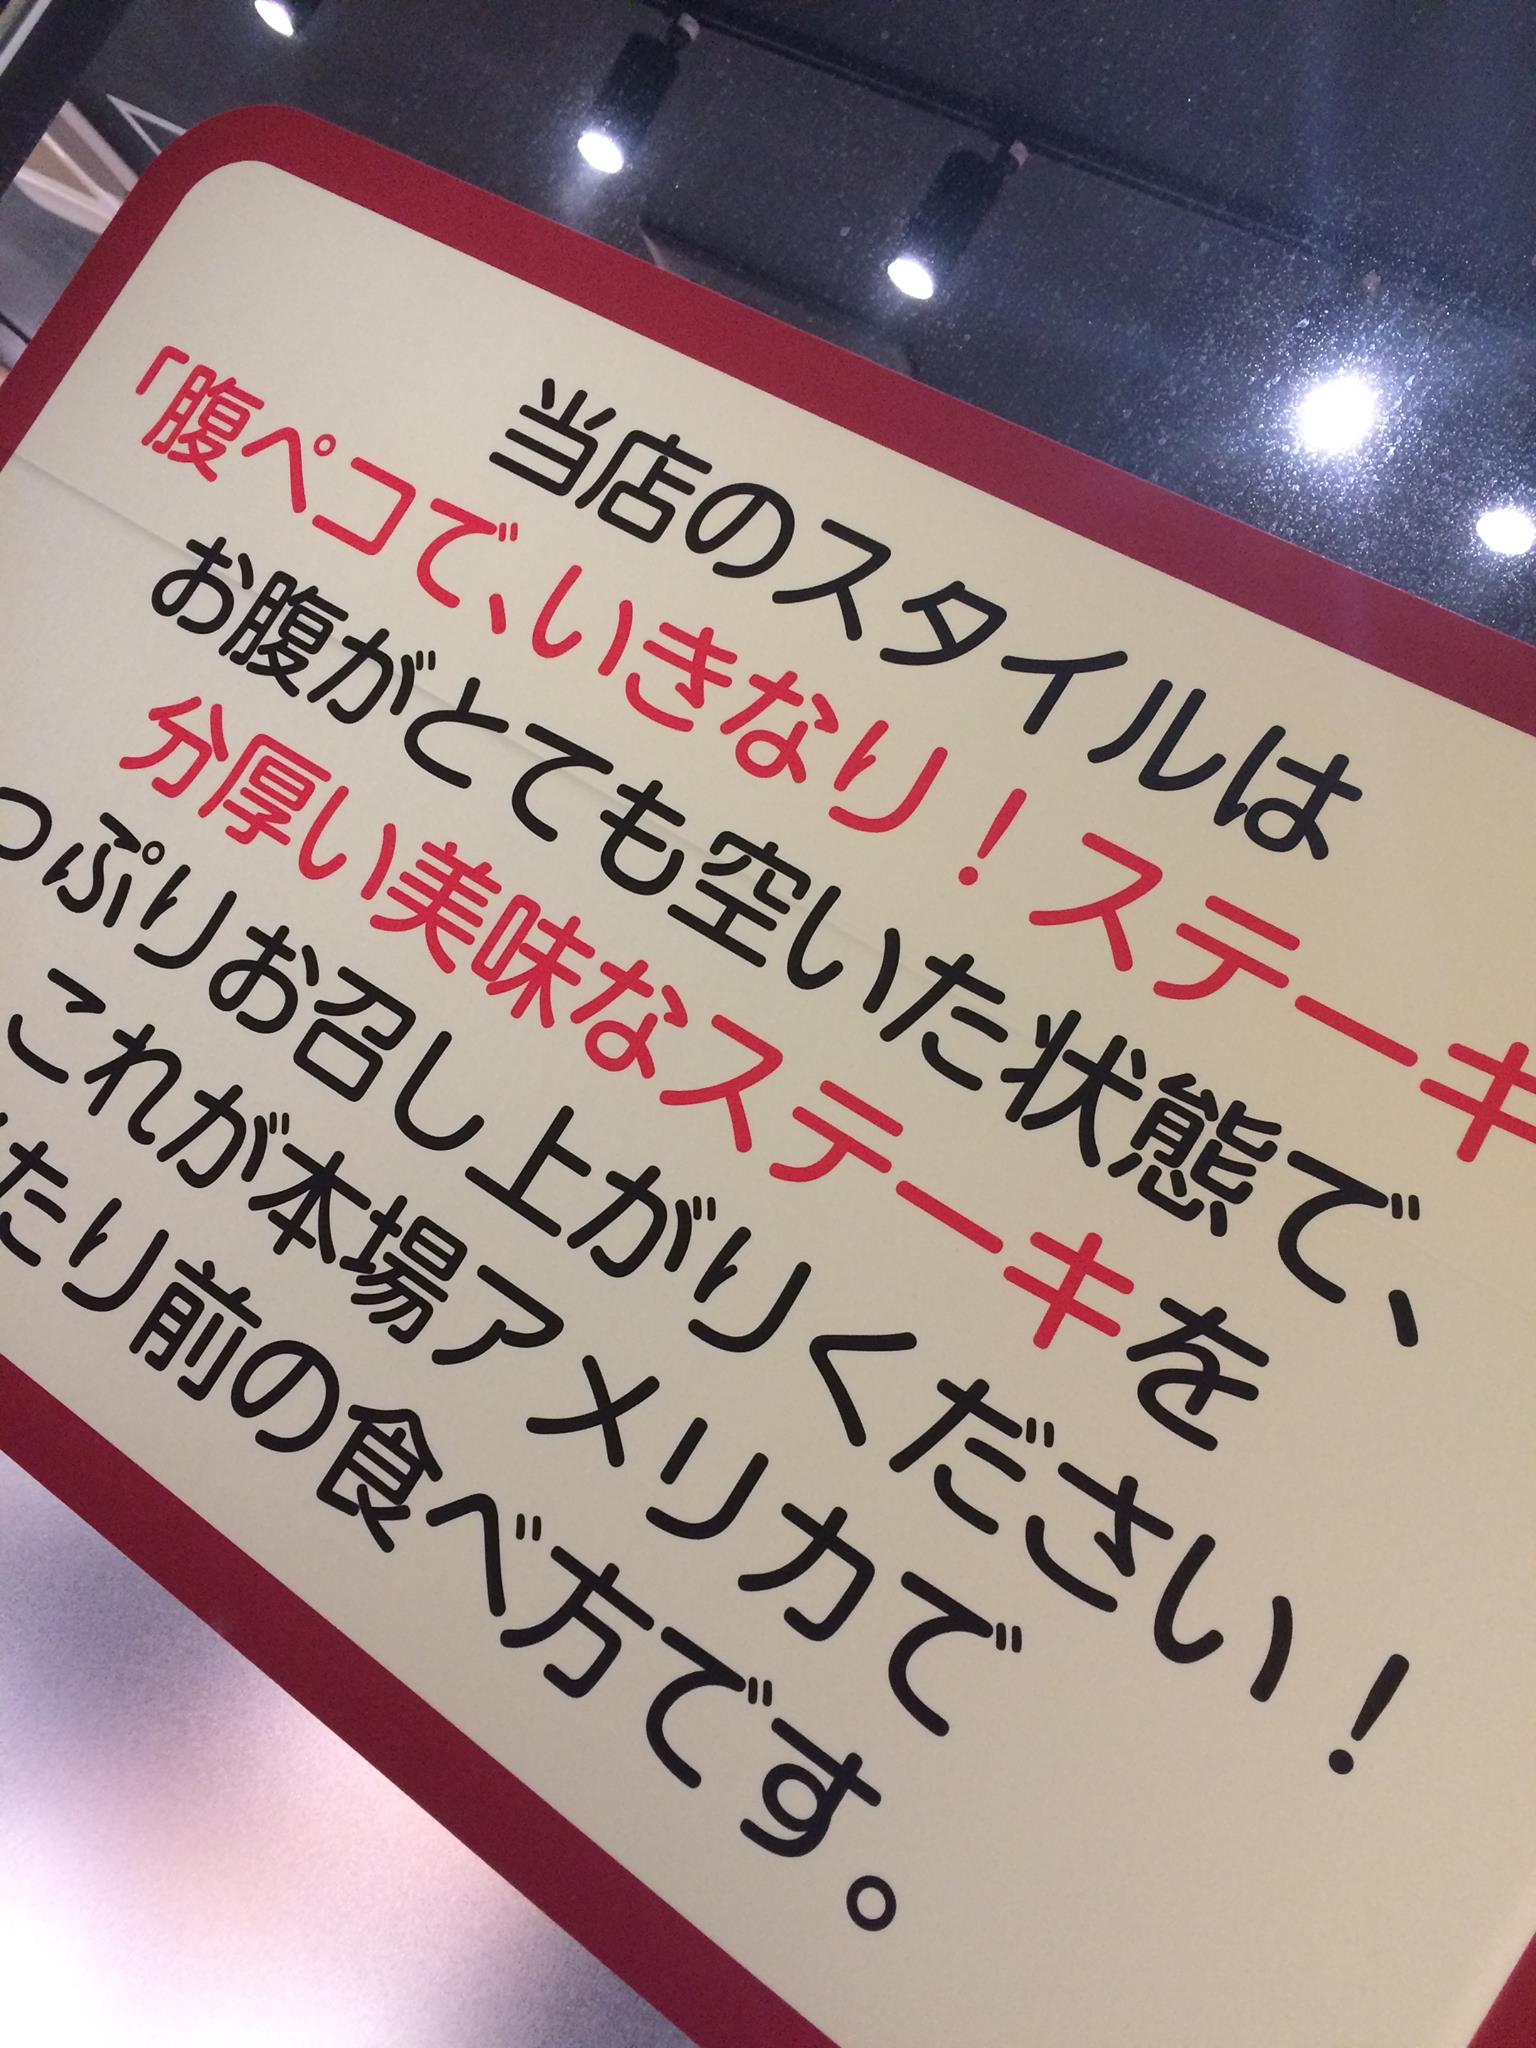 当店のスタイルは
「腹ペコで、いきなり！ステーキ
お腹がとても空いた状態で、
分厚い美味なステーキを
っぷりお召し上がりください！
これが本場アメリカで
たり前の食べ方です。